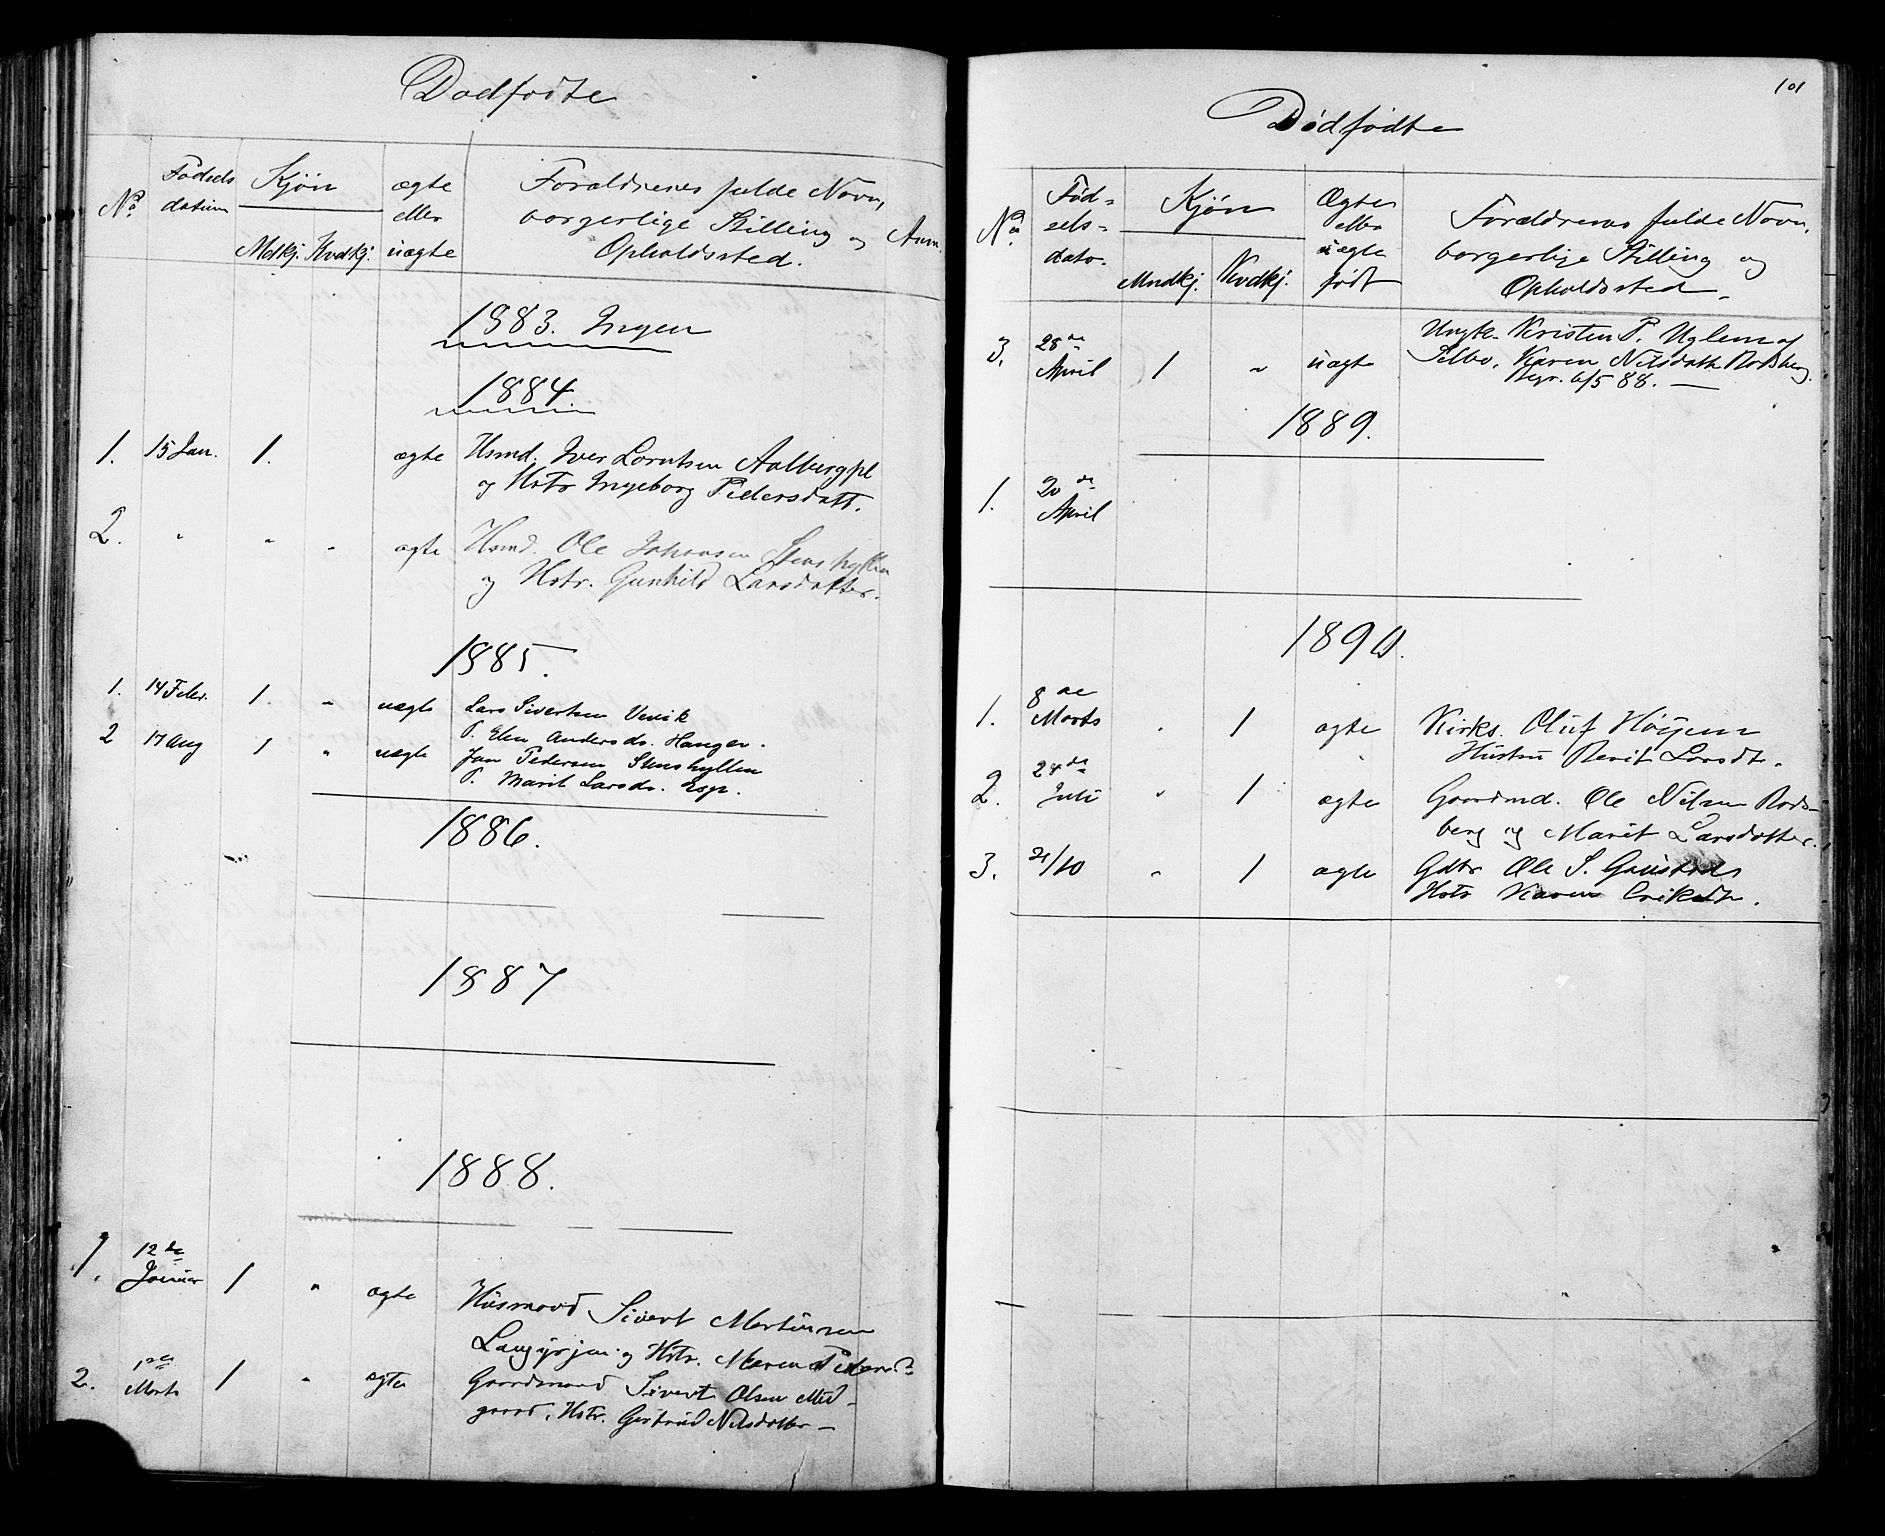 Dødfødte
No
Fødsels
datum
Kjøn
Mdkj. Kvdkj.
ægte
eller
uægte
Forældrenes fulde Navn,
borgerlige Stilling og
Opholdssted.
Anm.
1883. Ingen
1884.
1. 15 Jan. 1. ægte Hsmd. Iver Lorntsen Aalbergpl
og Hstr Ingeborg Pedersdatt.
2. " " " ægte Hsmd. Ole Johansen Stenshyllen
og Hstr. Gunhild Larsdatter.
1885.
1. 14 Febr. 1. " uægte Lars Sivertsen Venik
P. Elen Andersds. Hanger.
2 17 Aug 1 " uægte Jan Pedersen Stenshyllen
P. Marit Larsds. Esp.
1886.
1887
1888.
1. 12te
Januar 1 " ægte Husmand Sivert Martinsen
og Hstr. Maren
2. 1ste
Marts 1 " ægte Gaardmand Sivert Olsen Mid-
gaard, Hstr. Gjertrud Nilsdatter —
101
Dødfødte
No
Fød-
sels-
dato.
Kjøn
Mndkj. Kvdkj.
Ægte
eller
uægte
født
Forældrenes fulde Navn,
borgerlige Stilling og
Opholdssted.
3. 28de
April 1 " uægte Ungk. Kristen P. Uglem af
Selbo, Karen Nilsdatt. Rodsberg.
Begr. 6/5 88. —
1889.
1. 20de
April
1890.
1. 8de
Marts " 1 ægte Kirks. Oluf Høijem
Hustru Berit Larsdtr.
2. 24de
Juli " 1 ægte Gaardmd. Ole Nilsen Rods-
berg og Marit Larsdatter.
3. 21/10 " 1 ægte Gdbr Ole S. Gaustads
Hstr Karen Eriksdtr.